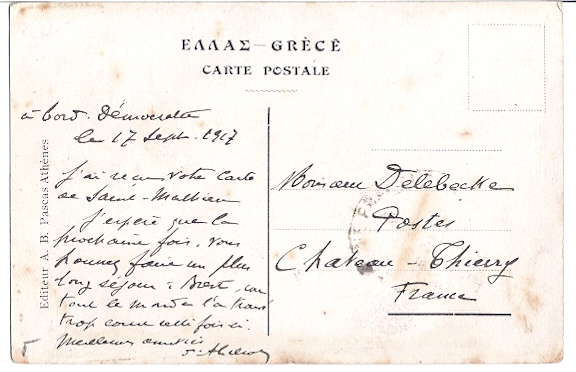 ΕΛΛΑΣ — GRÈCE
CARTE POSTALE
à bord. Démocratie
le 17 Sept. 1917
J'ai reçu votre carte
de Saint-Mathieu
J'espère que la
prochaine fois, vous
pourrez faire un plus
long séjour à Brest, car
tout le monde l'a trouvé
trop court cette fois-ci.
Meilleures amitiés
Editeur A. B. Pascas Athènes
Monsieur Delebecke
Postes
Château-Thierry
France